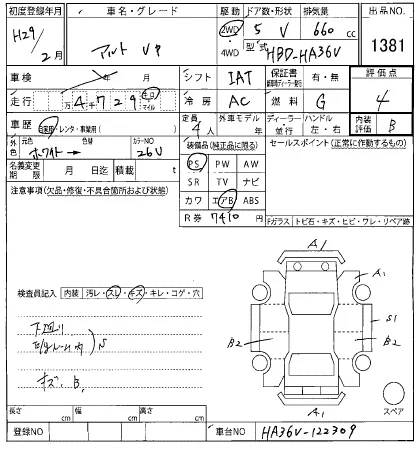 初度登録年月 車名・グレード 駆動 ドア数・形状 排気量 出品NO
H29/2月 アルト VP 2WD 4WD 5 V 660 cc 1381
型式 HBD-HA36V
車検 年 月 シフト IAT 保証書 有・無 評価点
走行 万 4千729 キロ マイル 冷房 AC 燃料 G 4
車歴 自家用・レンタ・事業用( ) 定員 4人 外車モデル 年 ディーラー 並行 ハンドル 左・右 内装評価 B
外色 元色 ホワイト→ 色替 カラーNO 26U 装備品(純正品に限る) セールスポイント(正常に作動するもの)
名義変更期限 月 日迄 積載 t PS PW AW
注意事項(欠品・修復・不具合箇所および状態) SR TV ナビ
カワ エアB ABS
R券 7410円
Fガラス トビ石・キズ・ヒビ・ワレ・リペア跡
A1
A1
検査員記入 内装 汚レ・スレ・キズ・キレ・コゲ・穴
S1
下回り
B2 B2
S
キズ B,
A1 スペア
長さ cm 幅 cm 高さ cm
登録NO 車台NO HA36V-122309